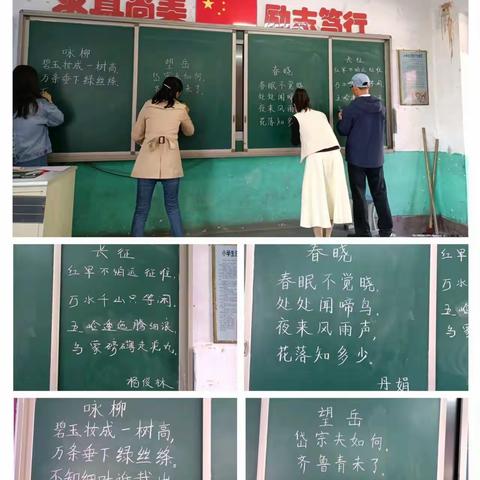 求真尚美
励志笃行
咏柳
碧玉妆成一树高,
万条垂下绿丝绦.
望岳
岱宗夫如何,
未了.
春晓
春眠不觉晓,
处处闻啼
夜来风雨
花落知多
长征
红军不怕远征难,
万水
五岭
长征
红军不怕远征难,
万水千山只等闲.
五岭逶迤腾细浪,
乌蒙磅礴走泥丸.
小学生日
春晓
春眠不觉晓,
处处闻啼鸟.
夜来风雨声,
花落知多少.
丹娟
长征
红军
万水
五岭
乌蒙
咏柳
碧玉妆成一树高,
万条垂下绿丝绦.
不知细叶谁裁出,
望岳
岱宗夫如何,
齐鲁青未了.